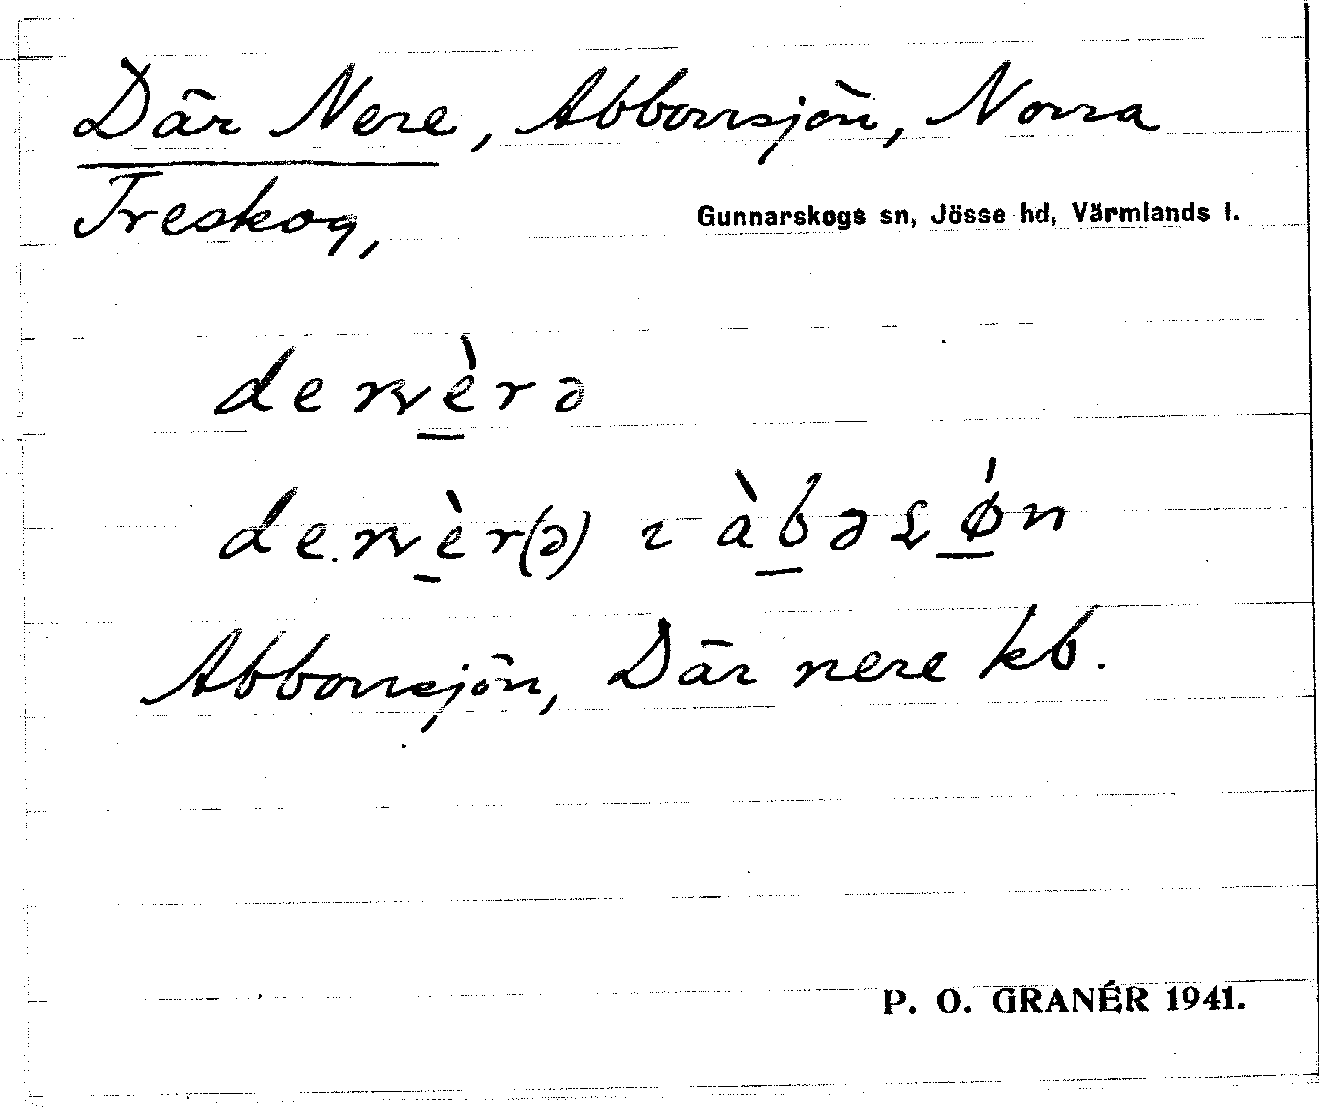 Där Nere, Abborrsjön, Norra
Treskog,
Gunnarskogs sn, Jösse hd, Värmlands l.
de nèrə
de nèr(ə) ɩ àbəʂǿn
Abborrsjön, Där nere kb.
P. O. GRANÉR 1941.